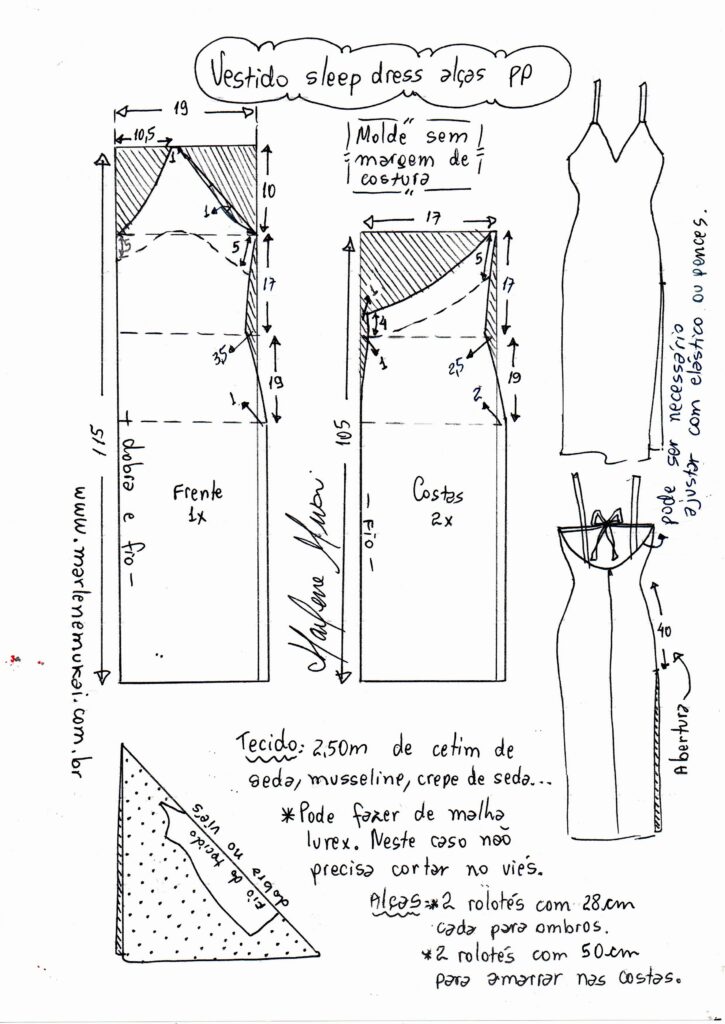 Vestido sleep dress alças PP
19
10,5
1
10
1
5
5
17
3,5
19
1
115
dobra e fio
Frente
1x
www.marlenemukai.com.br
Molde sem
margem de
costura
17
5
17
1
4
1
2,5
19
2
105
Fio
Costas
2x
Marlene Mukai
pode ser necessário
ajustar com elástico ou pences.
40
Abertura
Tecido: 2,50m de cetim de
seda, musseline, crepe de seda...
*Pode fazer de malha
lurex. Neste caso não
precisa cortar no viés.
Alças: *2 rolotés com 28cm
cada para ombros.
*2 rolotés com 50cm
para amarrar nas costas.
dobra no viés
Fio do tecido